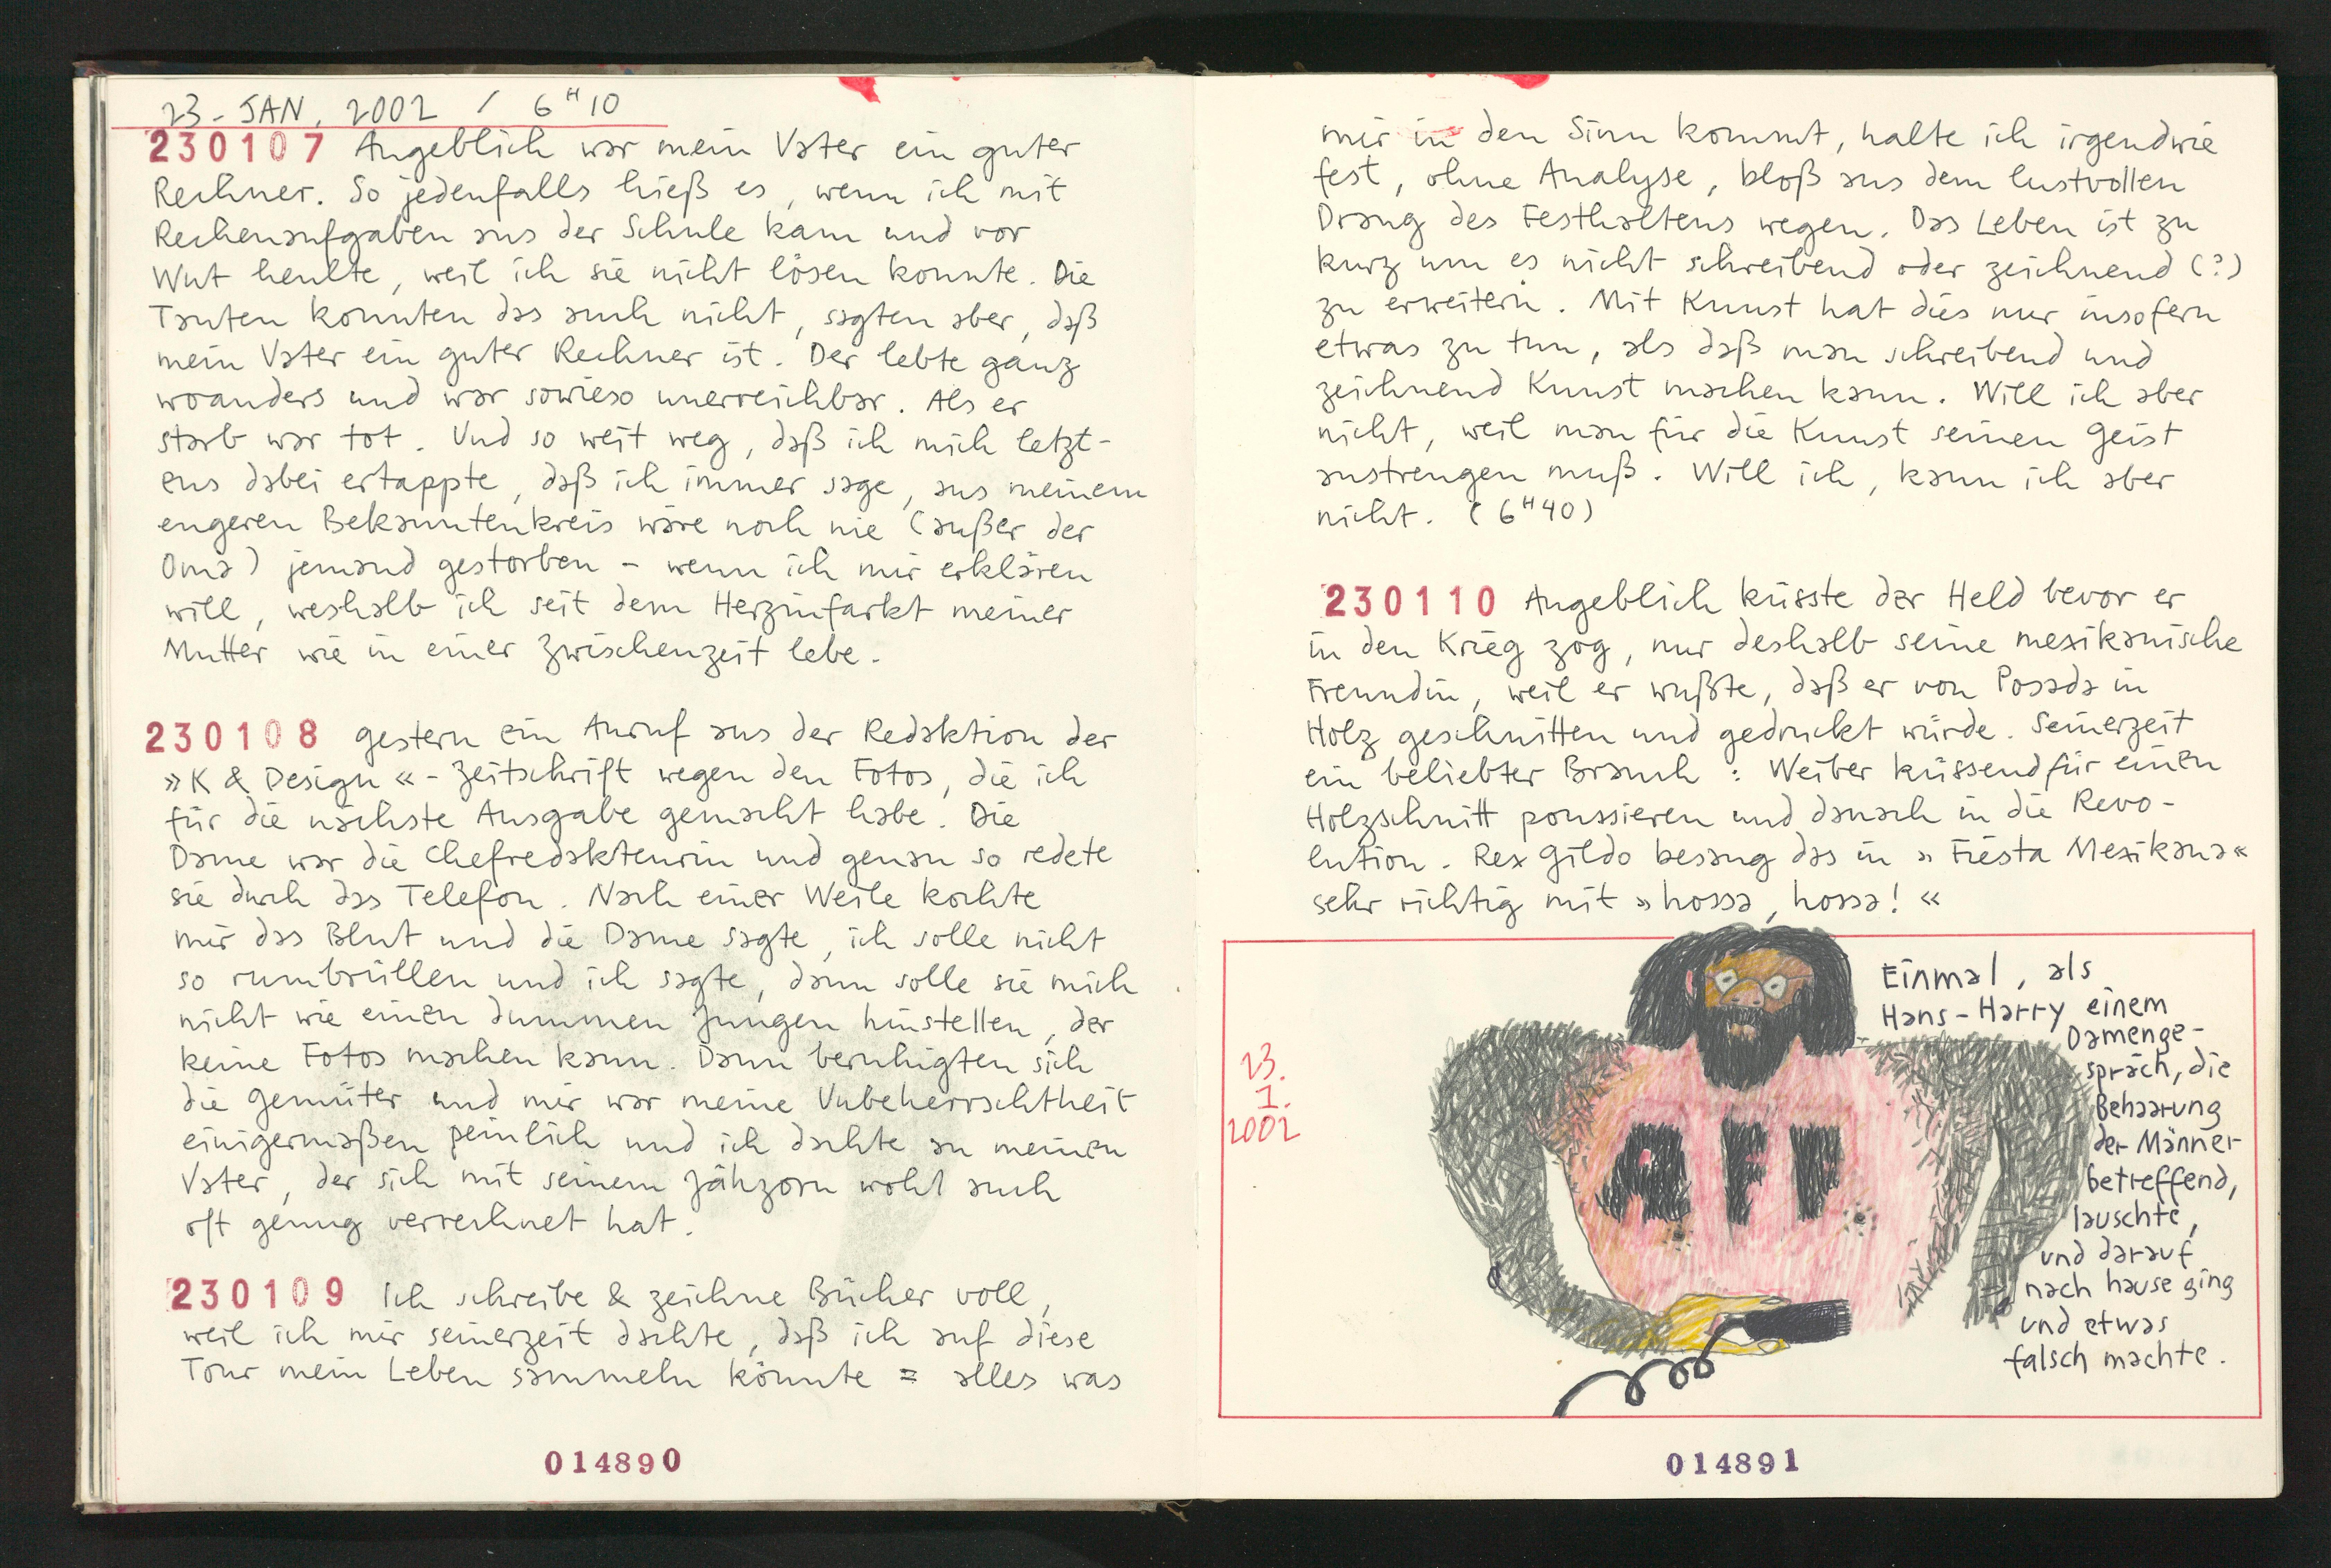 23. JAN. 2002 / 6H10
230107 Angeblich war mein Vater ein guter
Rechner. So jedenfalls hieß es, wenn ich mit
Rechenaufgaben aus der Schule kam und vor
Wut heulte, weil ich sie nicht lösen konnte. Die
Tanten konnten das auch nicht, sagten aber, daß
mein Vater ein guter Rechner ist. Der lebte ganz
woanders und war sowieso unerreichbar. Als er
starb war tot. Und so weit weg, daß ich mich letzt-
ens dabei ertappte, daß ich immer sage, aus meinem
engeren Bekanntenkreis wäre noch nie (außer der
Oma) jemand gestorben - wenn ich mir erklären
will, weshalb ich seit dem Herzinfarkt meiner
Mutter wie in einer Zwischenzeit lebe.
230108 gestern ein Anruf aus der Redaktion der
»K & Design«-Zeitschrift wegen den Fotos, die ich
für die nächste Ausgabe gemacht habe. Die
Dame war die Chefredakteurin und genau so redete
sie durch das Telefon. Nach einer Weile kochte
mir das Blut und die Dame sagte, ich solle nicht
so rumbrüllen und ich sagte, dann solle sie mich
nicht wie einen dummen Jungen hinstellen, der
keine Fotos machen kann. Dann beruhigten sich
die Gemüter und mir war meine Unbeherrschtheit
einigermaßen peinlich und ich dachte an meinen
Vater, der sich mit seinem Jähzorn wohl auch
oft genug verrechnet hat.
230109 Ich schreibe & zeichne Bücher voll,
weil ich mir seinerzeit dachte, daß ich auf diese
Tour mein Leben sammeln könnte = alles was
014890
mir in den Sinn kommt, halte ich irgendwie
fest, ohne Analyse, bloß aus dem lustvollen
Drang des Festhaltens wegen. Das Leben ist zu
kurz um es nicht schreibend oder zeichnend (?)
zu erweitern. Mit Kunst hat dies nur insofern
etwas zu tun, als daß man schreibend und
zeichnend Kunst machen kann. Will ich aber
nicht, weil man für die Kunst seinen Geist
anstrengen muß. Will ich, kann ich aber
nicht. (6H40)
230110 Angeblich küsste der Held bevor er
in den Krieg zog, nur deshalb seine mexikanische
Freundin, weil er wußte, daß er von Posada in
Holz geschnitten und gedruckt würde. Seinerzeit
ein beliebter Brauch: Weiber küssend für einen
Holzschnitt poussieren und danach in die Revo-
lution. Rex Gildo besang das in »Fiesta Mexikana«
sehr richtig mit »hossa, hossa!«
23.
1.
2002
AFP
Einmal, als
Hans-Harry einem
Damenge-
spräch, die
Behaarung
der Männer
betreffend,
lauschte,
und darauf
nach hause ging
und etwas
falsch machte.
014891